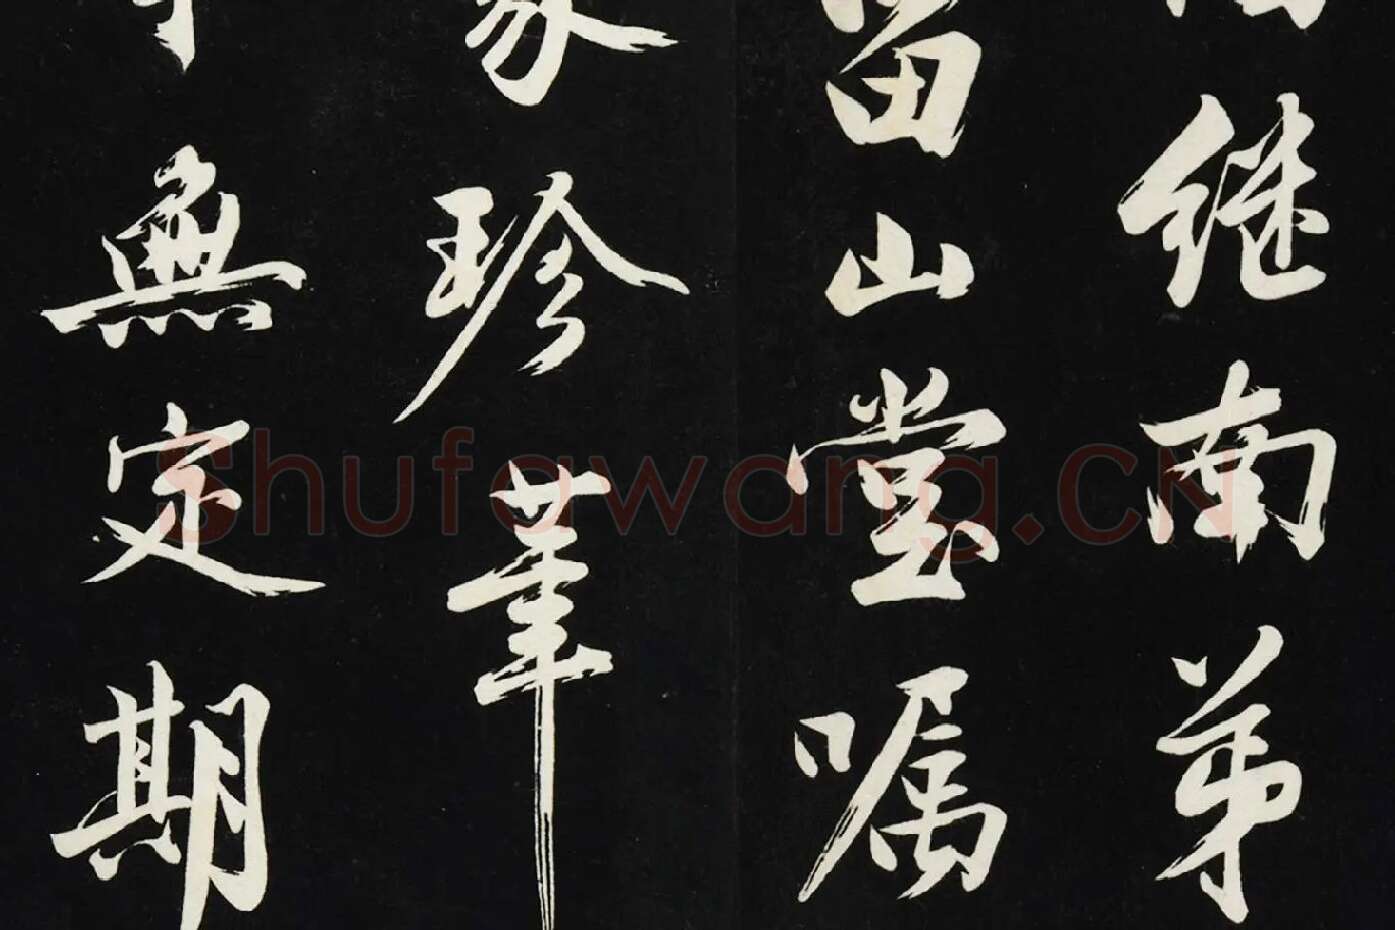 继南弟
山堂嘱
珍筆
無定期
Shufawang.CN